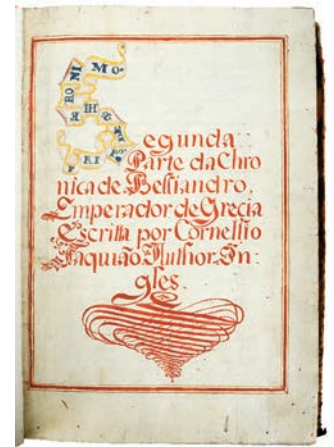 Segunda
Parte da Chro
nica de Belliandro.
Emperador de Grecia
Escritta por Cornellio
Author. In:
gles.